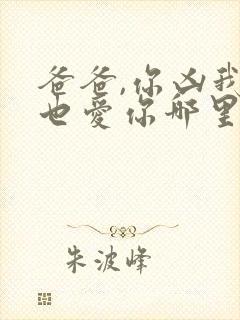 爸爸,你凶我
也爱你哪里
朱波峰